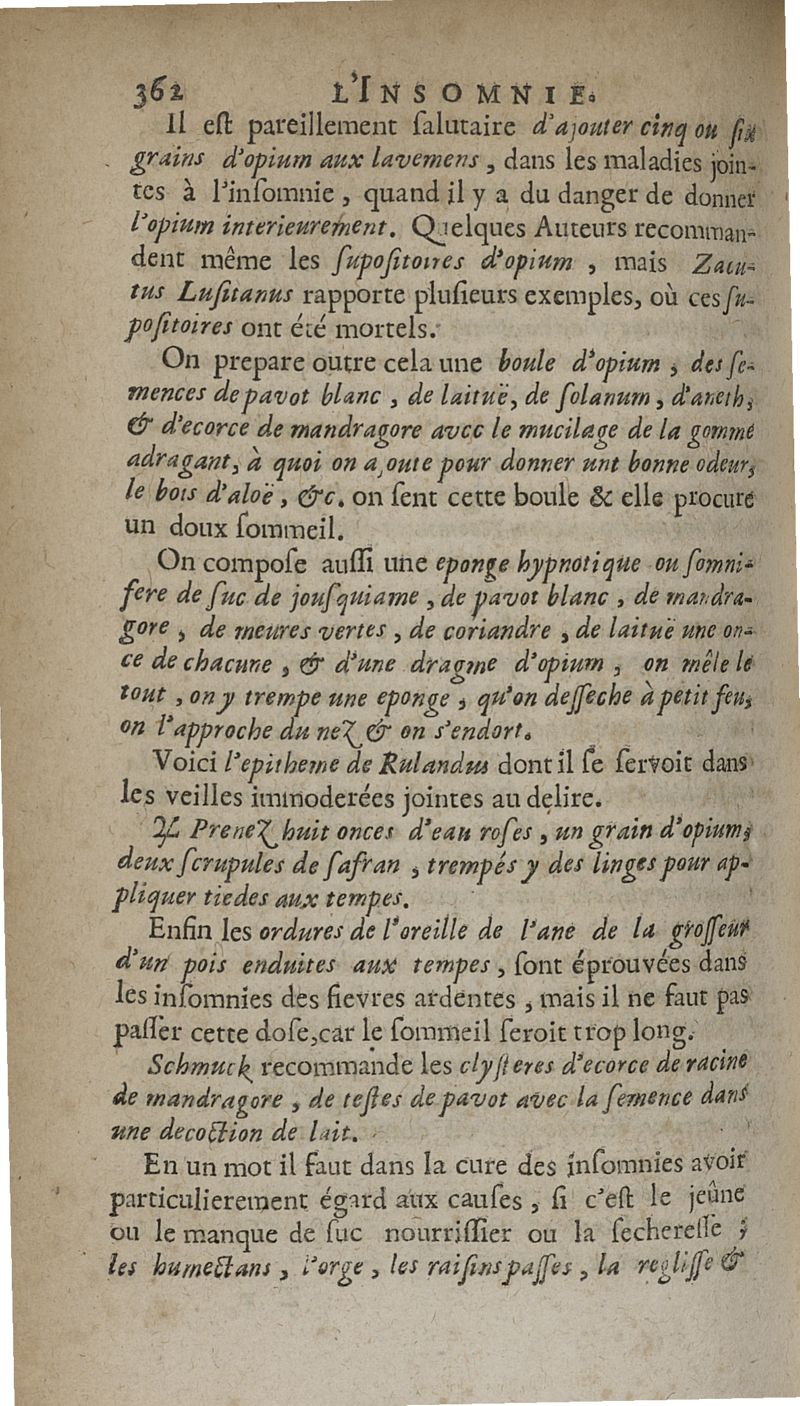 362 L'INSOMNIE.
Il eſt pareillement ſalutaire d'ajouter cinq ou ſix
grains d'opium aux lavemens, dans les maladies join-
tes à l'inſomnie, quand il y a du danger de donner
l'opium interieurement. Quelques Auteurs recomman-
dent même les ſupoſitoires d'opium, mais Zacu-
tus Luſitanus rapporte pluſieurs exemples, où ces ſu-
poſitoires ont été mortels.
On prepare outre cela une boule d'opium, des ſe-
mences de pavot blanc, de laituë, de ſolanum, d'aneth,
& d'ecorce de mandragore avec le mucilage de la gomme
adragant, à quoi on ajoute pour donner unt bonne odeur,
le bois d'aloë, &c. on ſent cette boule & elle procure
un doux ſommeil.
On compoſe auſſi une eponge hypnotique ou ſomni-
fere de ſuc de jouſquiame, de pavot blanc, de mandra-
gore, de meures vertes, de coriandre, de laituë une on-
ce de chacune, & d'une dragme d'opium, on mêle le
tout, on y trempe une eponge, qu'on deſſeche à petit feu,
on l'approche du nez & on s'endort.
Voici l'epitheme de Rulandus dont il ſe ſervoit dans
les veilles immoderées jointes au delire.
♃ Prenez huit onces d'eau roſes, un grain d'opium,
deux ſcrupules de ſafran, trempés y des linges pour ap-
pliquer tiedes aux tempes.
Enfin les ordures de l'oreille de l'ane de la groſſeur
d'un pois enduites aux tempes, ſont éprouvées dans
les inſomnies des fievres ardentes, mais il ne faut pas
paſſer cette doſe, car le ſommeil ſeroit trop long.
Schmuck recommande les clyſteres d'ecorce de racine
de mandragore, de teſtes de pavot avec la ſemence dans
une decoction de lait.
En un mot il faut dans la cure des inſomnies avoir
particulierement égard aux cauſes, ſi c'eſt le jeûne
ou le manque de ſuc nourriſſier ou la ſechereſſe;
les humectans, l'orge, les raiſins paſſes, la regliſſe &